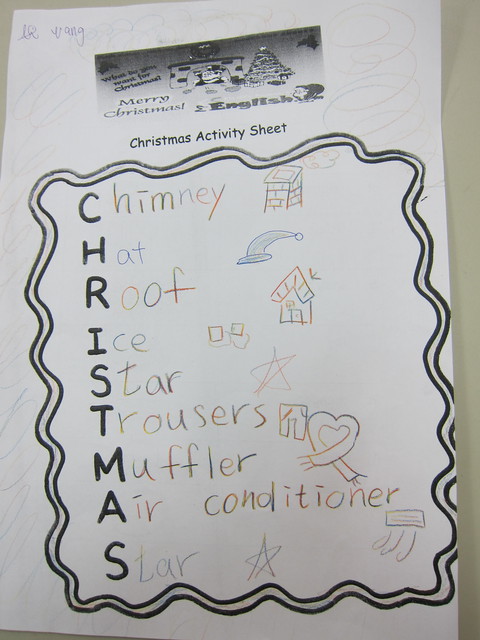 What do you
want for
Christmas?
Merry
Christmas!
English
Christmas Activity Sheet
Chimney
Hat
Roof
Ice
Star
Trousers
Muffler
Air conditioner
Star